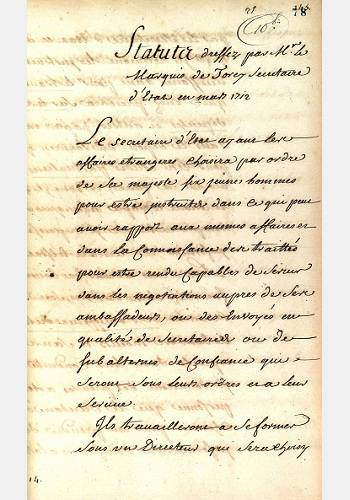 10.e
18
Statuts dressez par Mr. le
Marquis de Torcy Secretaire
d'Etat en mars 1712
Le secretaire d'Etat ayant les
affaires etrangeres choisira par ordre
de sa majesté six jeunes hommes
pour estre instruits dans ce qui peut
avoir rapport aux memes affaires et
dans la Connoissance des traittés
pour estre rendu Capables de servir
dans les negotiations aupres de ses
ambassadeurs, ou des Envoyés en
qualité de secretaires ou de
subalternes de Confiance qui
seront sous leurs ordres et a leur
service.
Ils travailleront a se former
sous un Directeur qui sera choisy
14.